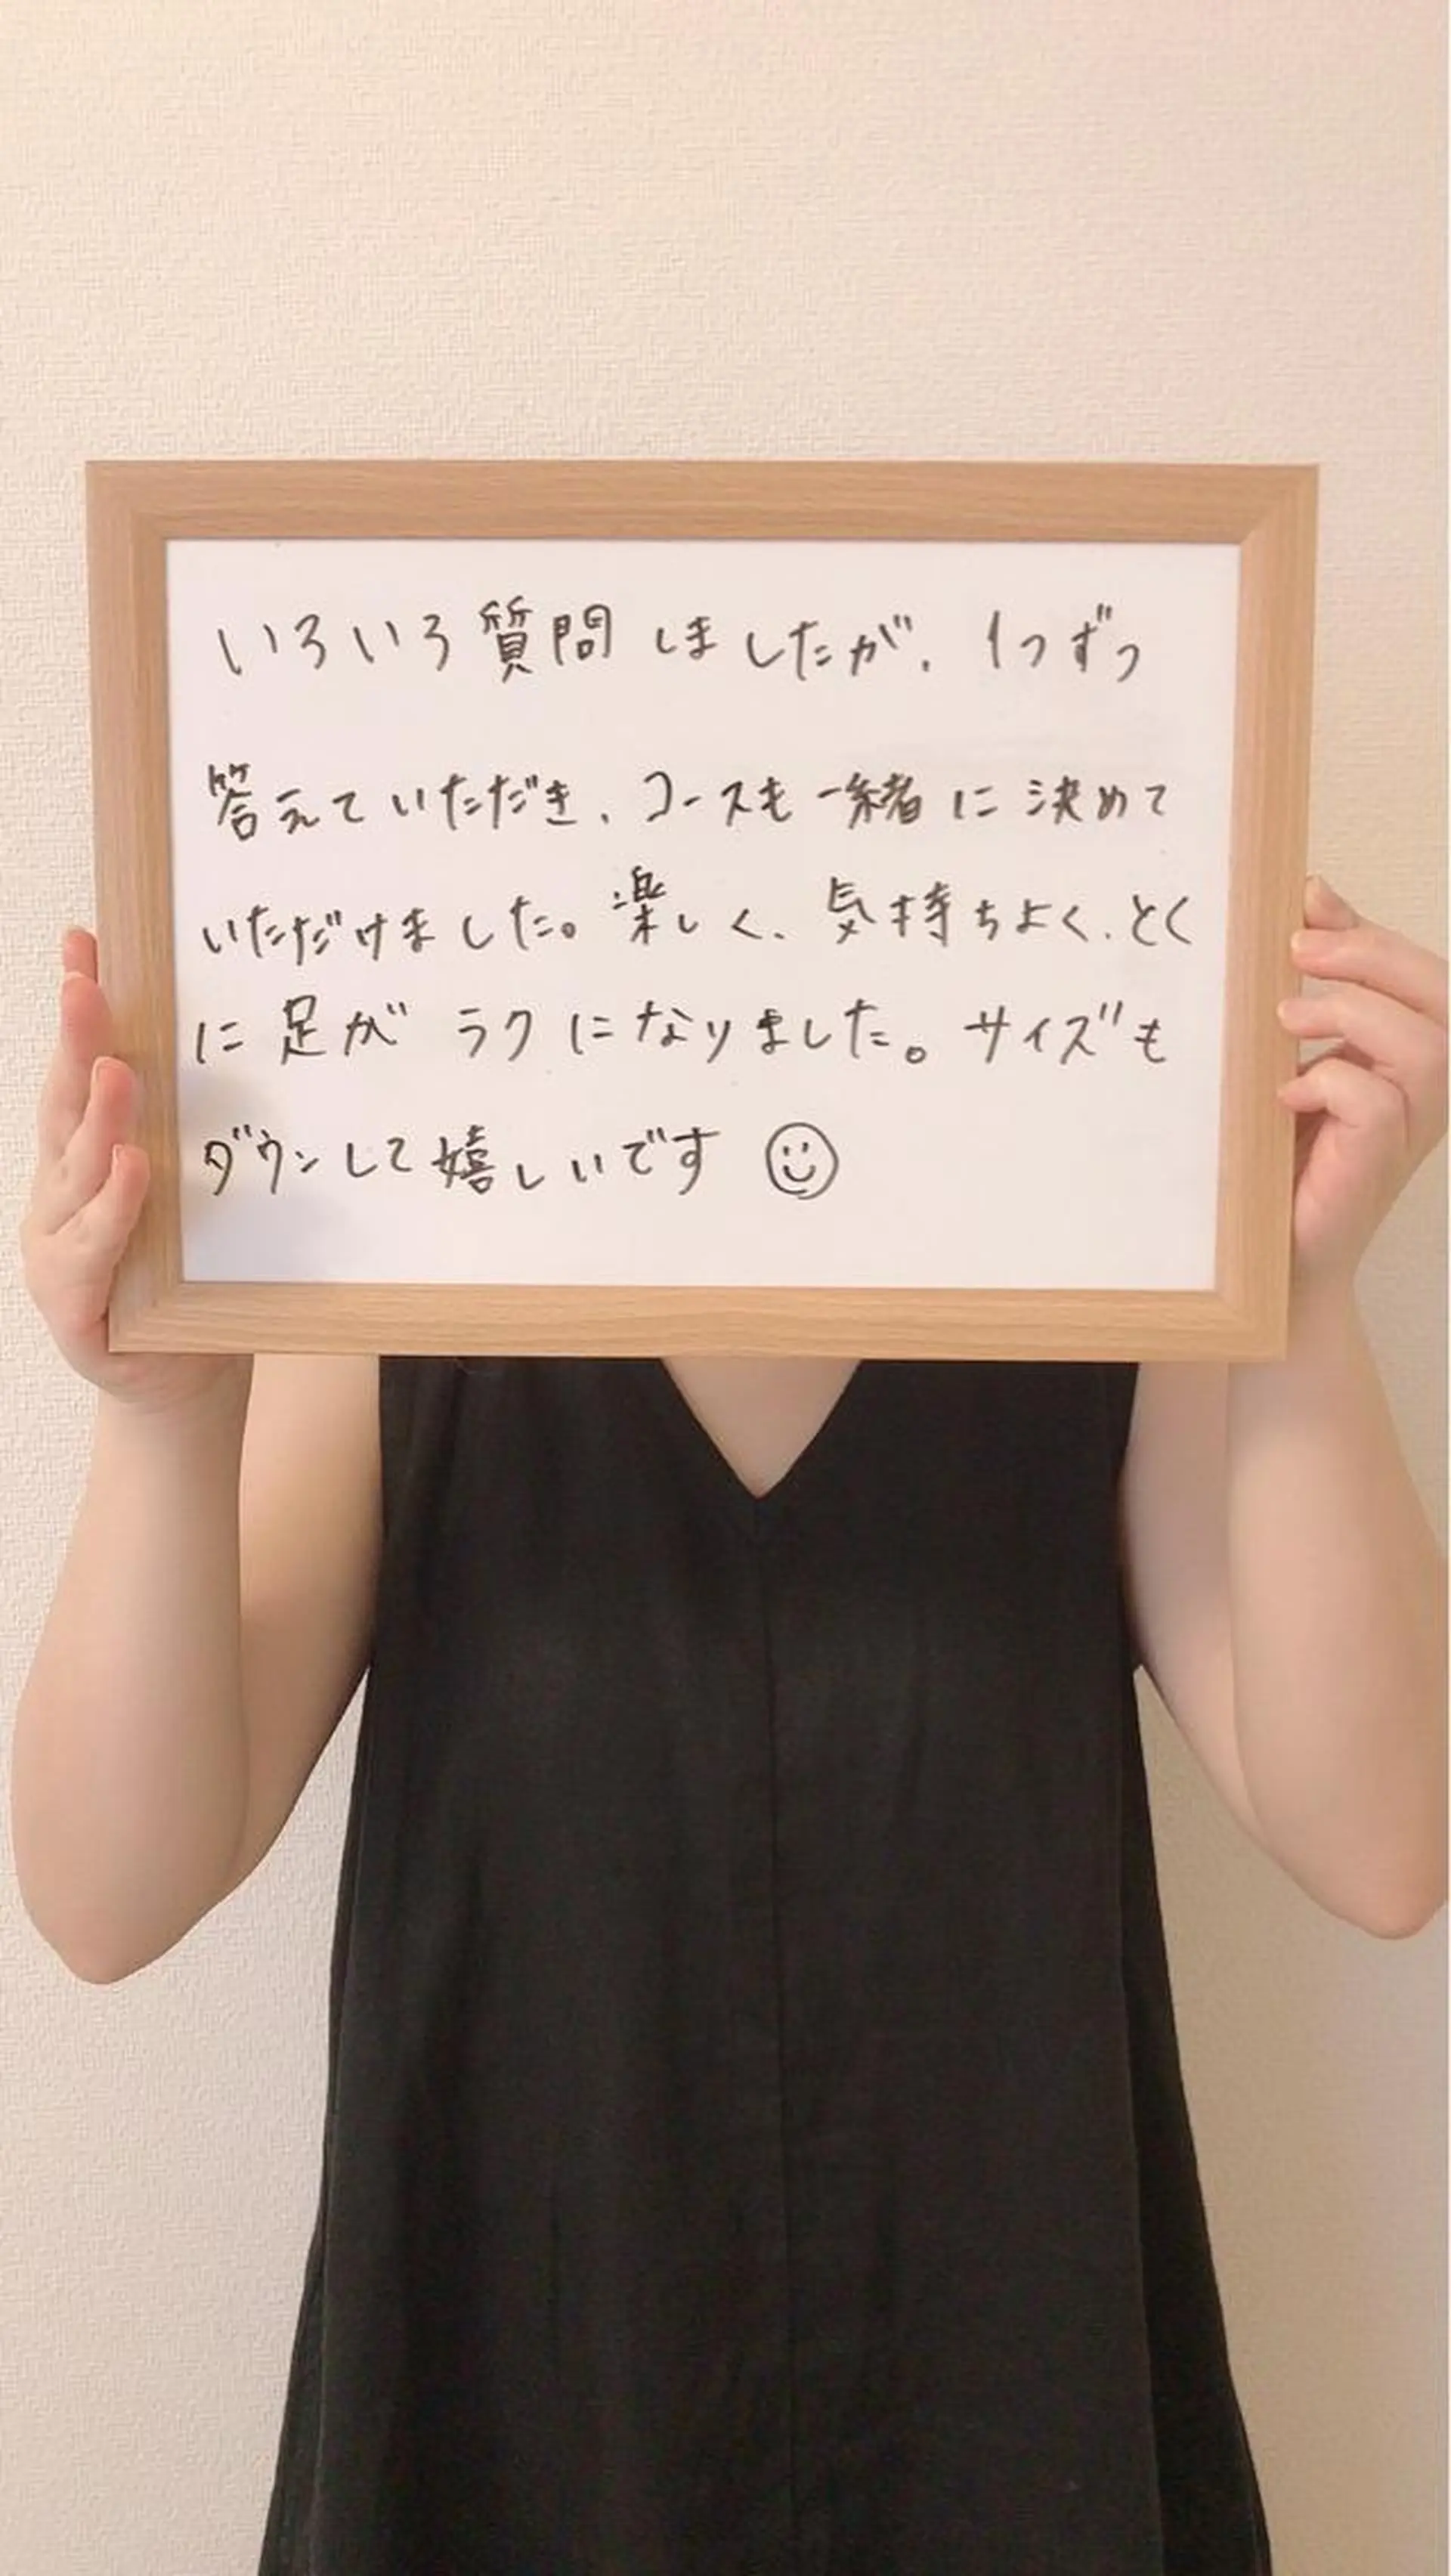 いろいろ質問しましたが、1つずつ
答えていただき、コースも一緒に決めて
いただけました。楽しく、気持ちよく、とく
に足がラクになりました。サイズも
ダウンして嬉しいです☺